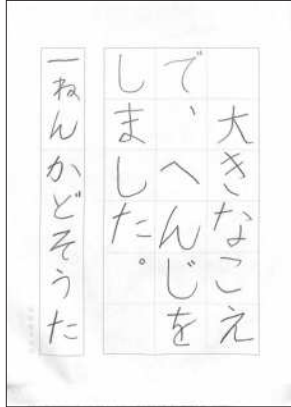 大きなこえ
で、へんじを
しました。
一ねんかどそうた